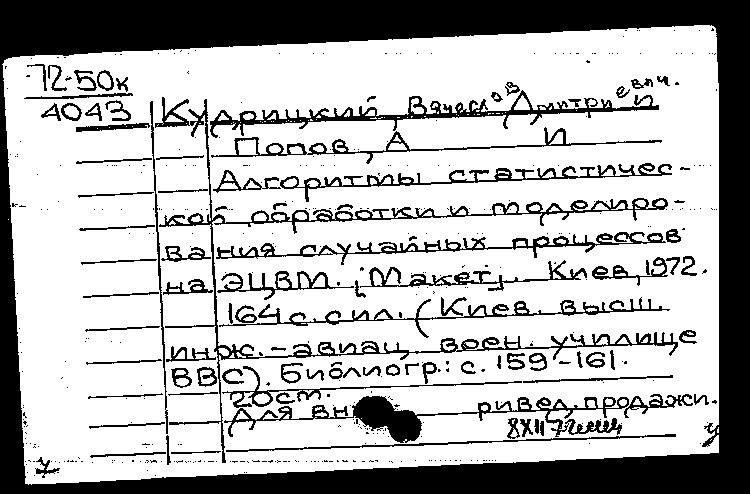 72-50к
4043
Кудрицкий, Вячеслов Дмитриевич. и
Попов, А И
Алгоритмы статистичес-
кой обработки и моделиро-
вания случайных процессов
на ЭЦВМ. [Макет]. Киев, 1972.
164 с. с ил. (Киев. высш.
инж.-авиац. воен. училище
ВВС). Библиогр.: с. 159-161.
20 см.
Для вн ривед. продажи.
у